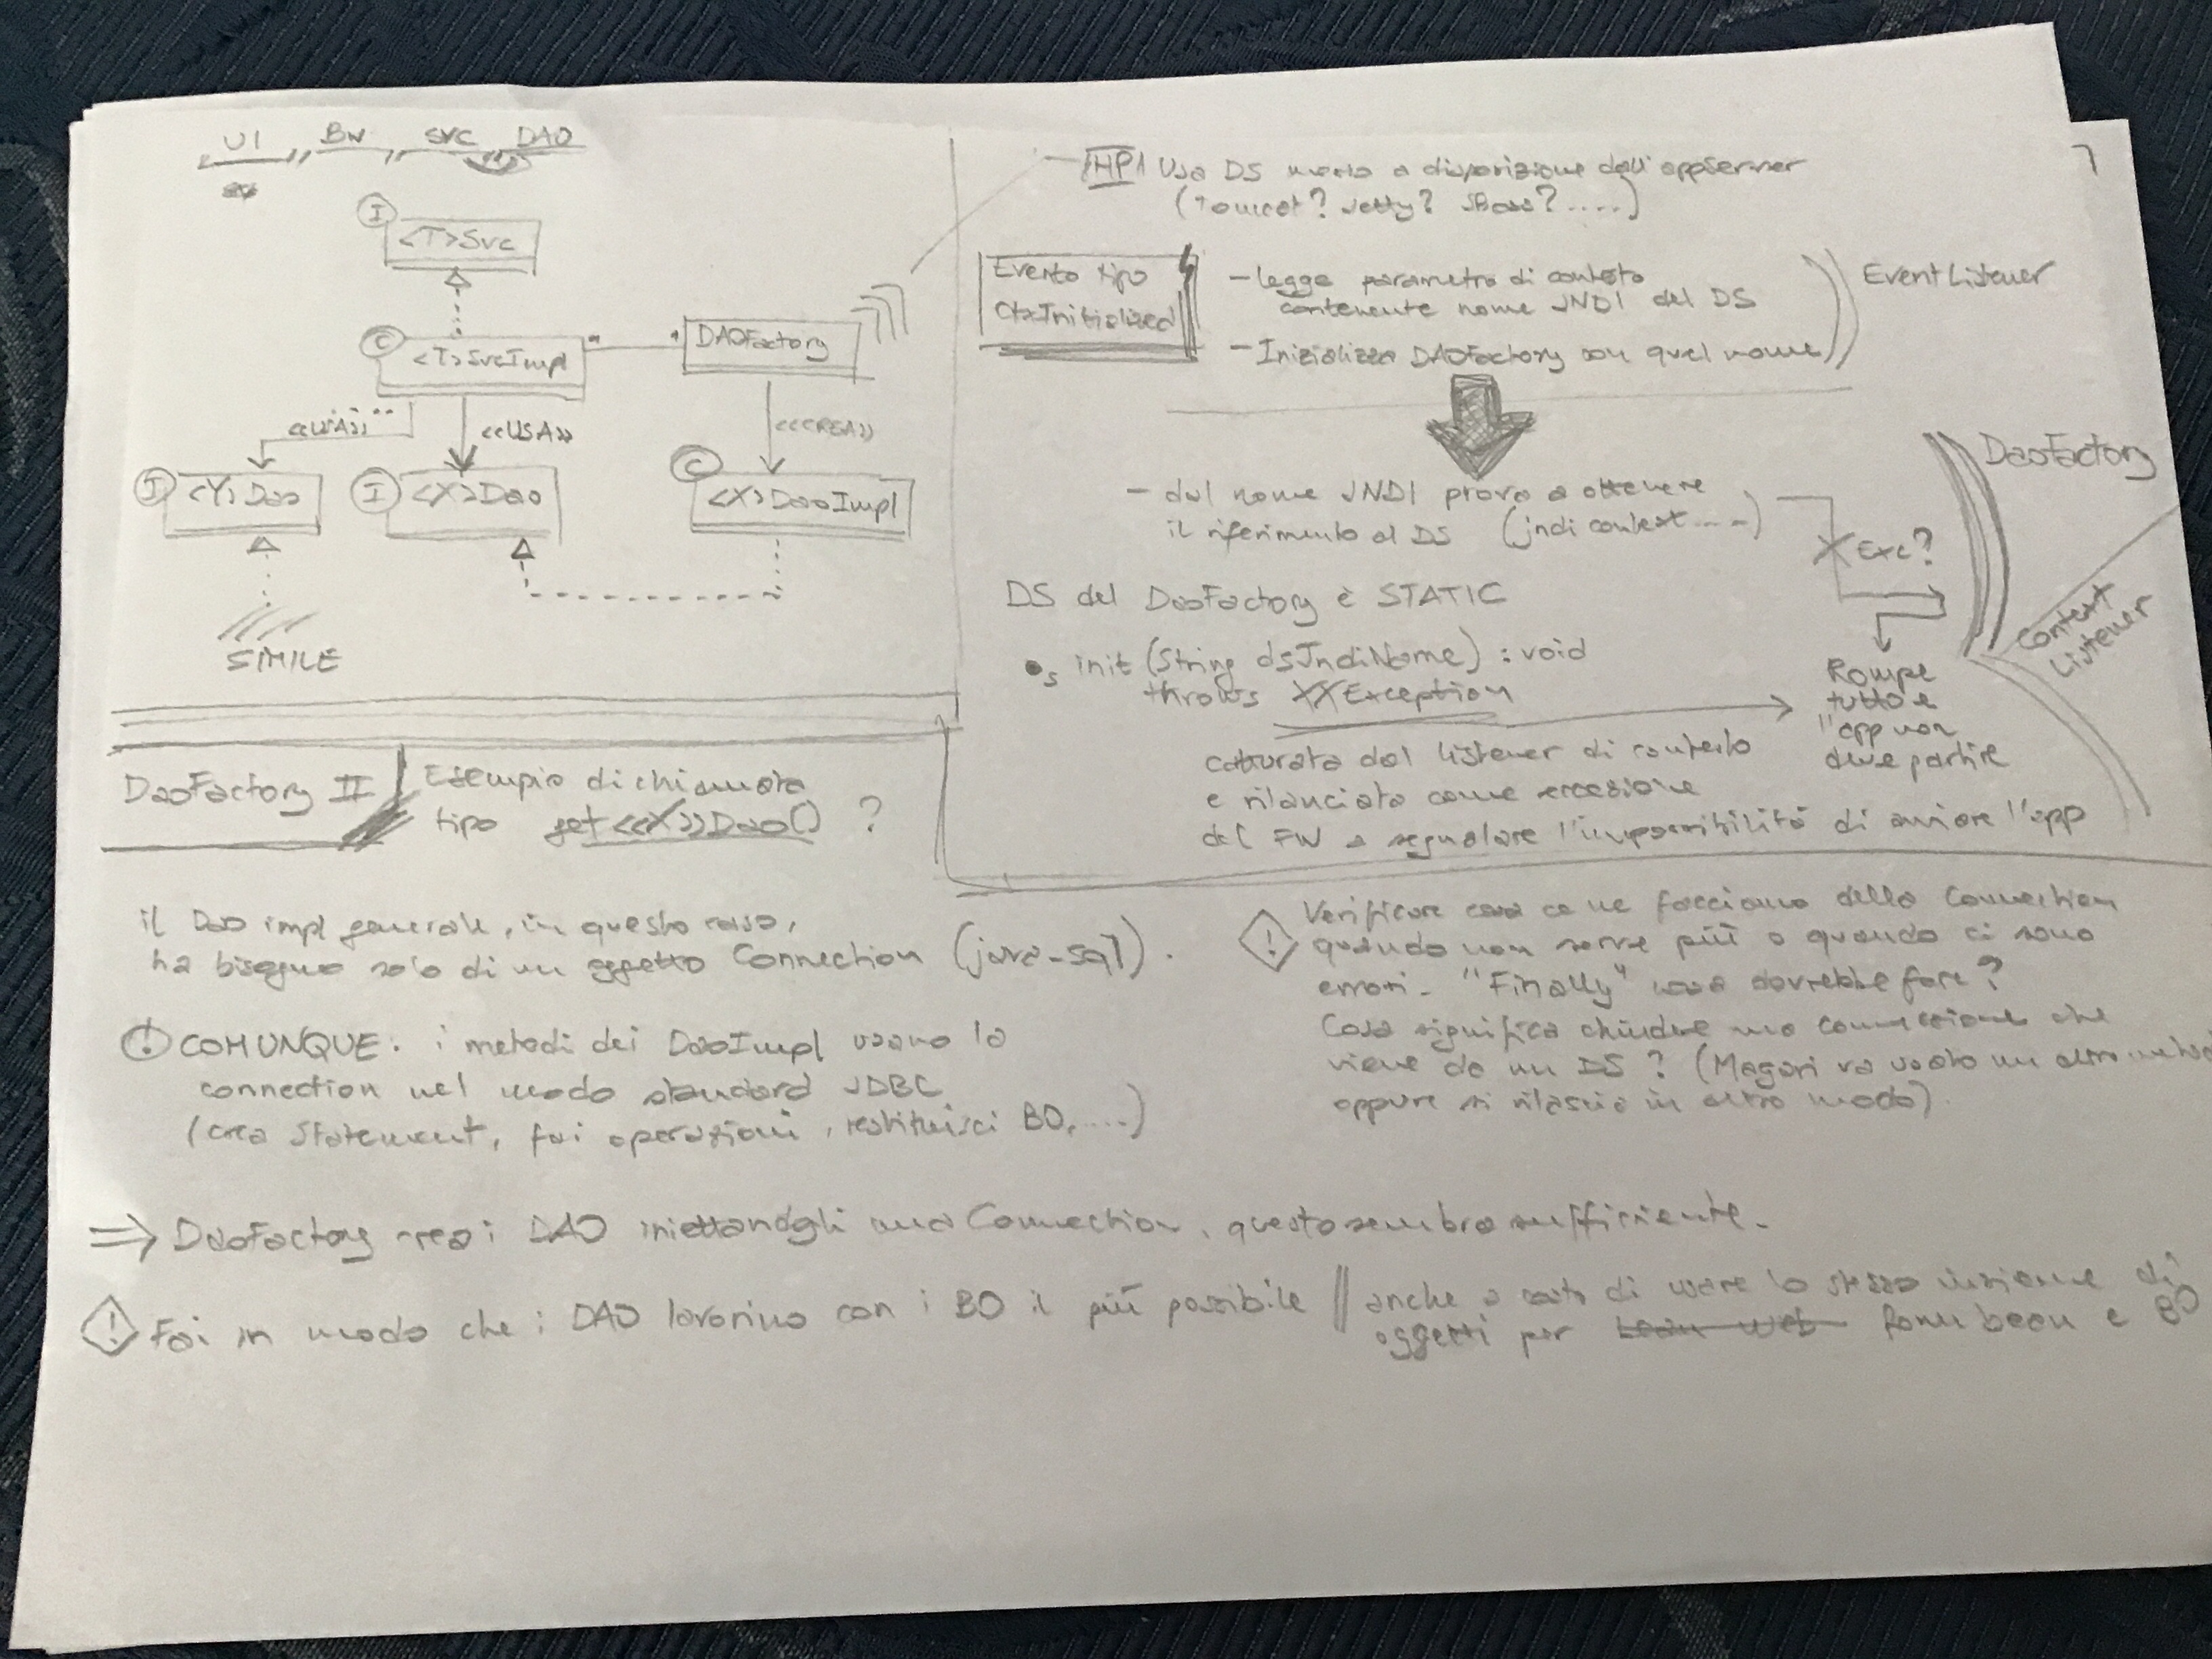 UI BW SVC DAO
I
<T>Svc
C
<T>SvcImpl
* *
DAOFactory
<<USA>>
<<USA>>
<<CREA>>
I <Y>Dao
I <X>Dao
C
<X>DaoImpl
SIMILE
7
HP Usa DS messo a disposizione dall'appServer
(Tomcat? Jetty? JBoss?....)
Evento tipo
CtxInitialized
- legge parametro di contesto
contenente nome JNDI del DS
- Inizializza DAOFactory con quel nome
EventListener
- dal nome JNDI prova a ottenere
il riferimento al DS (jndi context....)
Exc?
DaoFactory
Context
Listener
DS del DaoFactory è STATIC
s init (String dsJndiName) : void
throws XXException
Rompe
tutto e
l'app non
deve partire
catturata dal listener di contesto
e rilanciata come eccezione
del FW a segnalare l'impossibilità di avviare l'app
DaoFactory II
Esempio di chiamata
tipo get<<X>>Dao() ?
il Dao impl generale, in questo caso,
ha bisogno solo di un oggetto Connection (java-sql).
! COMUNQUE: i metodi dei DaoImpl usano la
connection nel modo standard JDBC
(crea Statement, fai operazioni, restituisci BO,....)
! Verificare cosa ce ne facciamo della Connection
quando non serve più o quando ci sono
errori. "Finally" cosa dovrebbe fare?
Cosa significa chiudere una connessione che
viene da un DS? (Magari va usato un altro metodo
oppure si rilascia in altro modo).
⇒ DaoFactory crea i DAO iniettandogli una Connection, questo sembra sufficiente.
! Fai in modo che i DAO lavorino con i BO il più possibile // anche a costo di usare lo stesso insieme di
oggetti per bean web form bean e BO